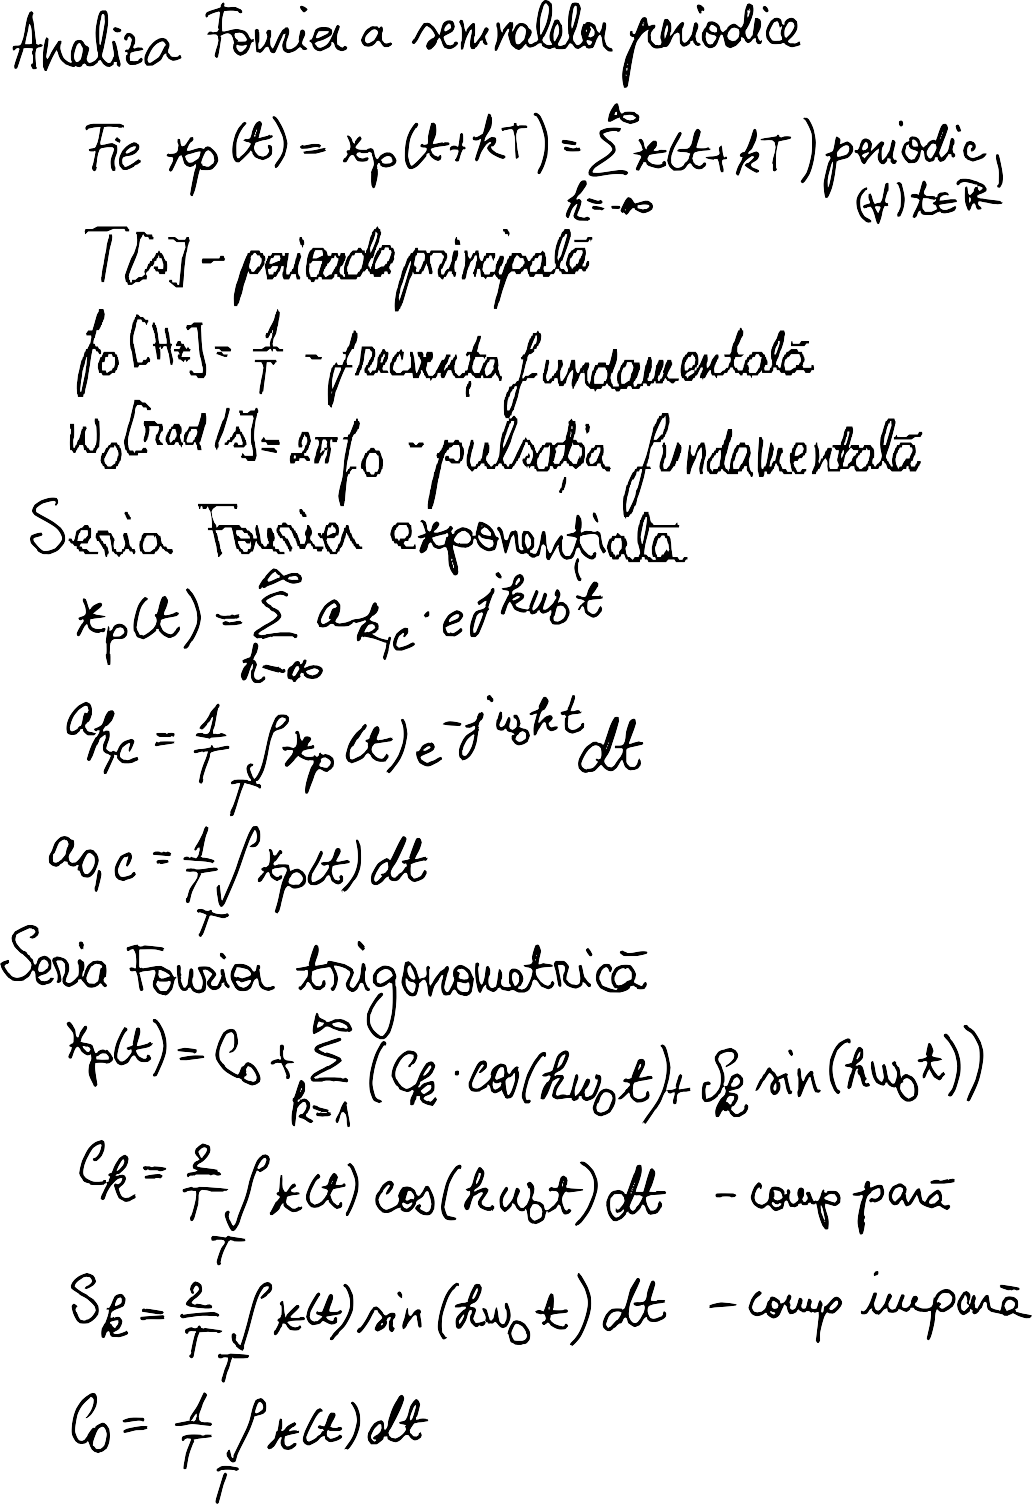 Analiza Fourier a semnalelor periodice
Fie xp(t) = xp(t+kT) = ∑_{k=-∞}^{∞} x(t+kT) periodic, (∀) t∈ℝ
T[s] - perioada principală
f₀[Hz] = 1/T - frecvența fundamentală
ω₀[rad/s] = 2πf₀ - pulsația fundamentală
Seria Fourier exponențială
xp(t) = ∑_{k=-∞}^{∞} a_{k,c} · e^{jkω₀t}
a_{k,c} = 1/T ∫_T xp(t) e^{-jω₀kt} dt
a_{0,c} = 1/T ∫_T xp(t) dt
Seria Fourier trigonometrică
xp(t) = C₀ + ∑_{k=1}^{∞} (C_k · cos(kω₀t) + S_k sin(kω₀t))
C_k = 2/T ∫_T x(t) cos(kω₀t) dt - comp pară
S_k = 2/T ∫_T x(t) sin(kω₀t) dt - comp impară
C₀ = 1/T ∫_T x(t) dt